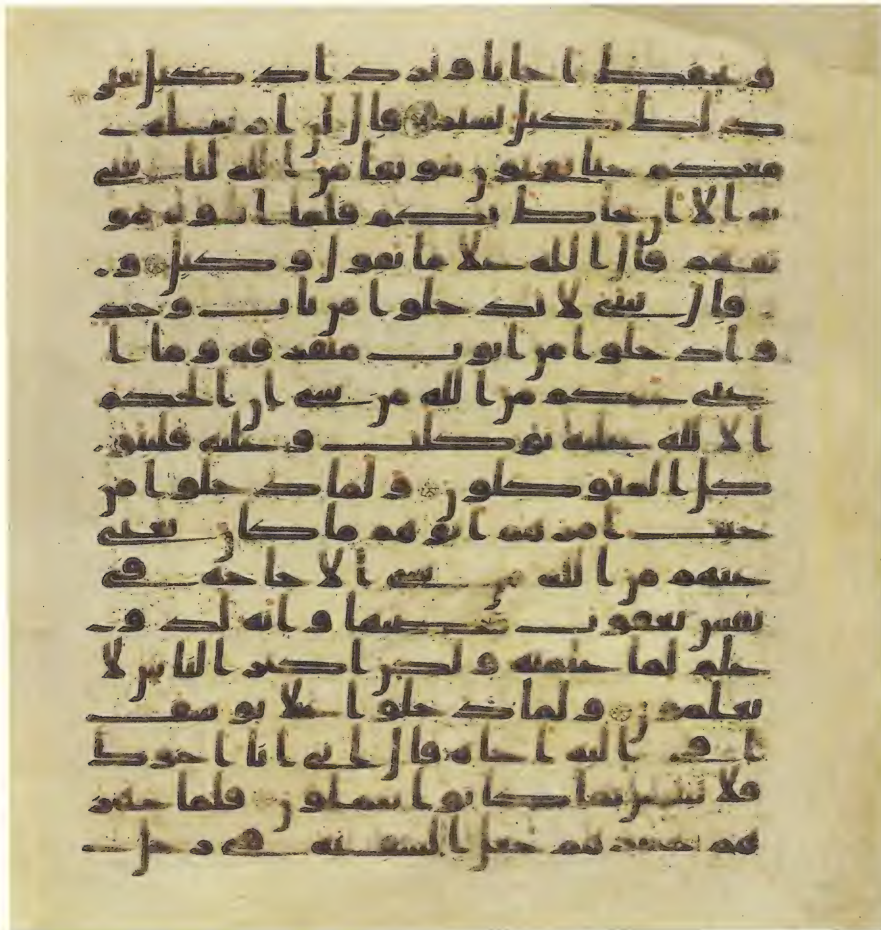 ونحفظ اخانا ونزداد كيل بعير
ذلك كيل يسير قال لن ارسله
معكم حتى توتون موثقا من الله لتاتننى
به الا ان يحاط بكم فلما اتوه مو
ثقهم قال الله على ما نقول وكيل و
قال يبنى لا تدخلوا من باب وحد
وادخلوا من ابوب متفرقه وما ا
غنى عنكم من الله من شى ان الحكم
الا لله عليه توكلت وعليه فليتو
كل المتوكلون ولما دخلوا من
حيث امرهم ابوهم ما كان يغنى
عنهم من الله من شى الا حاجه فى
نفس يعقوب قضيها وانه لذو
علم لما علمنه ولكن اكثر الناس لا
يعلمون ولما دخلوا على يوسف
اوى اليه اخاه قال انى انا اخوك
فلا تبتيس بما كانوا يعملون فلما جهز
هم بجهزهم جعل السقيه فى رحل